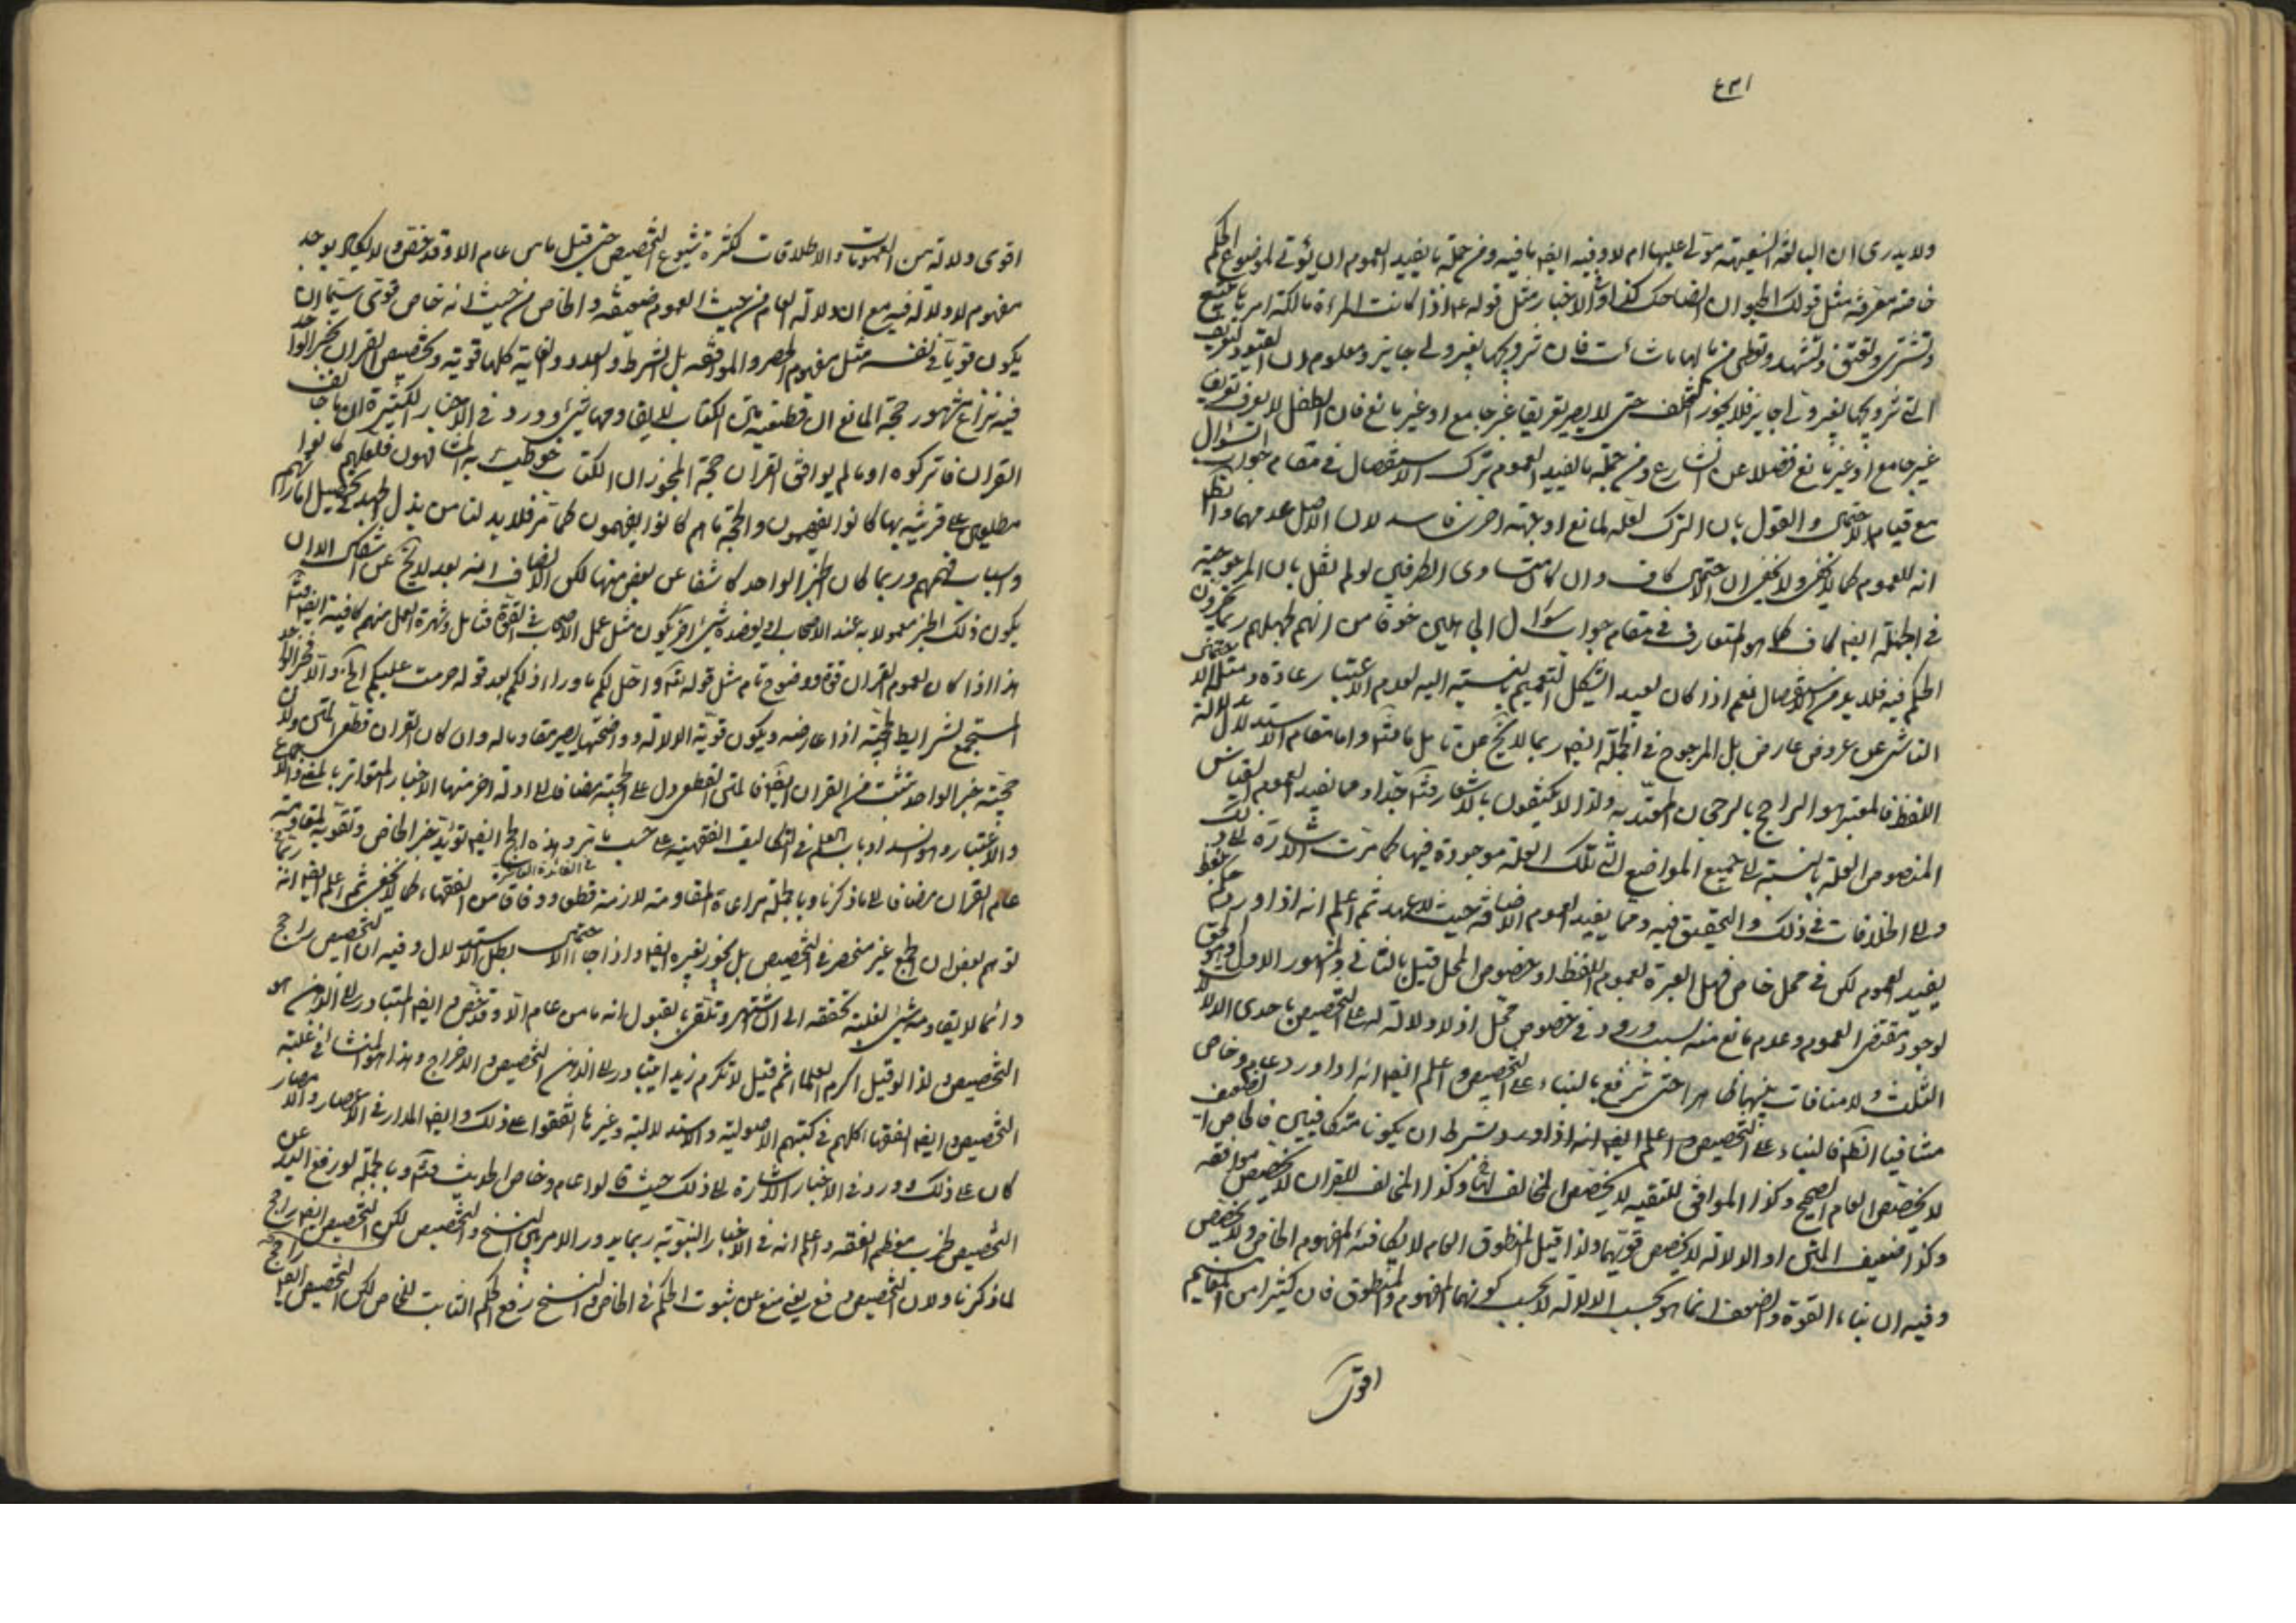 ولا يدرى ان البالغة السفيهة مولى عليها ام لا وفيه ايضا ما فيه ومن جملة ما يفيد العموم ان يؤتى لموضوع الحكم
خاصة معرفة مثل قولك الحيوان الضاحك كذا وفى الاخبار مثل قوله ع اذا كانت المراة مالكة امرها تبيع
وتشترى وتعتق وتشهد وتعطى من مالها ما شائت فان تزويجها بغير ولى جايز ومعلوم ان القيود لتعريف
التى تزويجها بغير ولى جايز فلا يجوز التخلف حتى لا يصير تعريفا غير جامع او غير مانع فان الطفل لا يعرف تعريف
غير جامع او غير مانع فضلا عن الشارع ومن جملة ما يفيد العموم ترك الاستفصال فى مقام جواب السؤال
مع قيام الاحتمال والقول بان الترك لعله لمانع او جهة اخرى فاسد لان الاصل عدمهما والظ
انه للعموم كما لا يخفى ولا يخفى ان احتمال كاف وان كان متساوى الطرفين لو لم نقل بان المرجوحية
فى الجملة ايضا كاف كما هو المتعارف فى مقام جواب سؤال الجاهلين خوفا من انهم لجهلهم ربما يجرون
الحكم فيه فلا بد من الاستفصال نعم اذا كان بعيد الشكل التعميم بالنسبة اليه لعدم الاعتبار عادة ومثل الاحتمال
الناشى عن عروض عارض بل المرجوح فى الجملة ايضا ربما لا يخ عن تامل فامّا واما مقام الاستدلال بدلالة
اللفظ فالمعتبر هو الراجح بالرجحان المعتد به ولذا لا يكتفون بالاشعار فتدبر جدا ومما يفيد العموم القياس
المنصوص العلة بالنسبة الى جميع المواضع التى تلك العلة موجودة فيها كما مرت الاشارة الى ذلك
والى الخلافات فى ذلك والتحقيق فيه ومما يفيد العموم الاضافة حيث لا عهد ثم اعلم انه اذا ورد حكم بلفظ
يفيد العموم لكن فى محل خاص فهل العبرة بعموم اللفظ او خصوص المحل قيل بالثانى والمشهور الاول وهو الحق
لوجود مقتضى العموم وعدم مانع منه سبب وروده فى خصوص محل اذ لا دلالة له على التخصيص باحدى الدلالات
الثلث ولا منافات بينهما ظاهرا حتى ترفع بالبناء على التخصيص واعلم ايضا انه اذا ورد عام وخاص
متنافيا الظ فالبناء على التخصيص واعلم ايضا انه اذا ورد وبشرط ان يكونا متكافيين فالخاص الضعيف
لا يخصص العام الصحيح وكذا الموافق للتقية لا يخصص المخالف لها وكذا المخالف للقران لا يخصص موافقه
وكذا ضعيف المتن او الدلالة لا يخصص قويهما ولذا قيل المنطوق العام لا يكافئه المفهوم الخاص ولا يخصص
وفيه ان بناء القوة والضعف انما هو بحسب الدلالة لا بحسب كونهما المفهوم والمنطوق فان كثيرا من المفاهيم
اقوى
اقوى دلالة من العمومات والاطلاقات لكثرة شيوع التخصيص حتى قيل ما من عام الا وقد خص ولا يكاد يوجد
مفهوم لا دلالة فيه مع ان دلالة العام من حيث العموم ضعيفة والخاص من حيث انه خاص قوى سيما ان
يكون قويا فى نفسه مثل مفهوم الحصر والموافقة بل الشرط والعدد والغاية كلها قوية وتخصيص القران بخبر الواحد
فيه نزاع مشهور حجة المانع ان قطعية متن الكتاب لا يقاومها شئ وورد فى الاخبار الكثيرة ان ما خالف
القران فاتركوه او ما لم يوافق القران حجة المجوز ان الكتاب خوطب به المشافهون فلعلهم كانوا
مطلعين على قرينة بها كانوا يفهمون والحجة ما هم كانوا يفهمون كما مر فلا بد لنا من بذل الجهد فى تحصيل امارات
واسباب فهمهم وربما كان الخبر الواحد كاشفا عن بعض منها لكن الانصاف انه بعد لا يخ عن اشكال الا ان
يكون ذلك الخبر معمولا به عند الاصحاب او يعضده شئ اخر يكون مثل عمل الاصحاب فى القوة فتامل وشهرة العمل منهم كافية ايضا فتدبر
هذا اذا كان لعموم القران قوة ووضوح تام مثل قوله تعالى واحل لكم ما وراء ذلكم بعد قوله حرمت عليكم الخ والا فخبر الواحد
المستجمع لشرايط الحجية اذا عارضه ويكون قوية الدلالة وواضحتها يصير مقاوما له وان كان القران قطعى المتن ولان
حجية خبر الواحد تثبت من القران ايضا فالمتن القطعى دل على الحجية مضافا الى ادلة اخر منها الاخبار المتواترة بالمعنى والاجماع
والاعتبار وهو انسداد باب العلم فى التكاليف الفقهية على حسب ما مر وهذه الحجج ايضا تؤيد خبر الخاص وتقويه لمقاومة
عام القران مضافا الى ما ذكرنا وبالجملة مراعاة المقاومة لازمة قطعا ووفاقا من الفقهاء كما لا يخفى ثم اعلم ايضا انه ربما
فى الفائدة العاشرة
توهم بعض ان الجمع غير منحصر فى التخصيص بل يجوز بغيره ايضا واذا جاء الاحتمال بطل الاستدلال وفيه ان التخصيص راجح
دائما لا يقاومه شئ لغلبة تحققه الى ان اشتهر وتلقى بالقبول انه ما من عام الا وقد خص وايضا المتبادر الى الذهن هو
التخصيص ولذا لو قيل اكرم العلماء ثم قيل لا تكرم زيدا يتبادر الى الذهن التخصيص والاخراج وهذا هو المنشأ فى غلبة
التخصيص وايضا الفقهاء كلهم فى كتبهم الاصولية والاستدلالية وغيرها اتفقوا على ذلك وايضا المدار فى الاعصار والامصار
كان على ذلك وورد فى الاخبار الاشارة الى ذلك حيث قالوا عام وخاص الحديث فتدبر وبالجملة لو رفع اليد عن
التخصيص لخرب معظم الفقه واعلم انه فى الاخبار النبوية ربما يدور الامر بين النسخ والتخصيص لكن التخصيص ايضا راجح
لما ذكرنا ولان التخصيص دفع يعنى منع عن ثبوت الحكم فى الخاص والنسخ رفع الحكم الثابت للخاص لكن التخصيص ايضا راجح